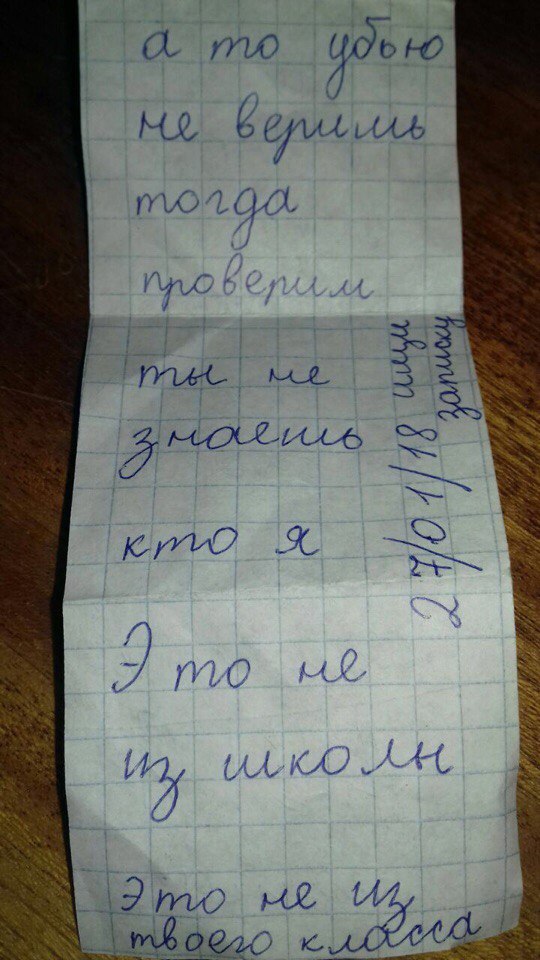 а то убью
не веришь
тогда
проверим
ты не
знаешь
кто я
27/01/18 ищи
записку
Это не
из школы
это не из
твоего класса